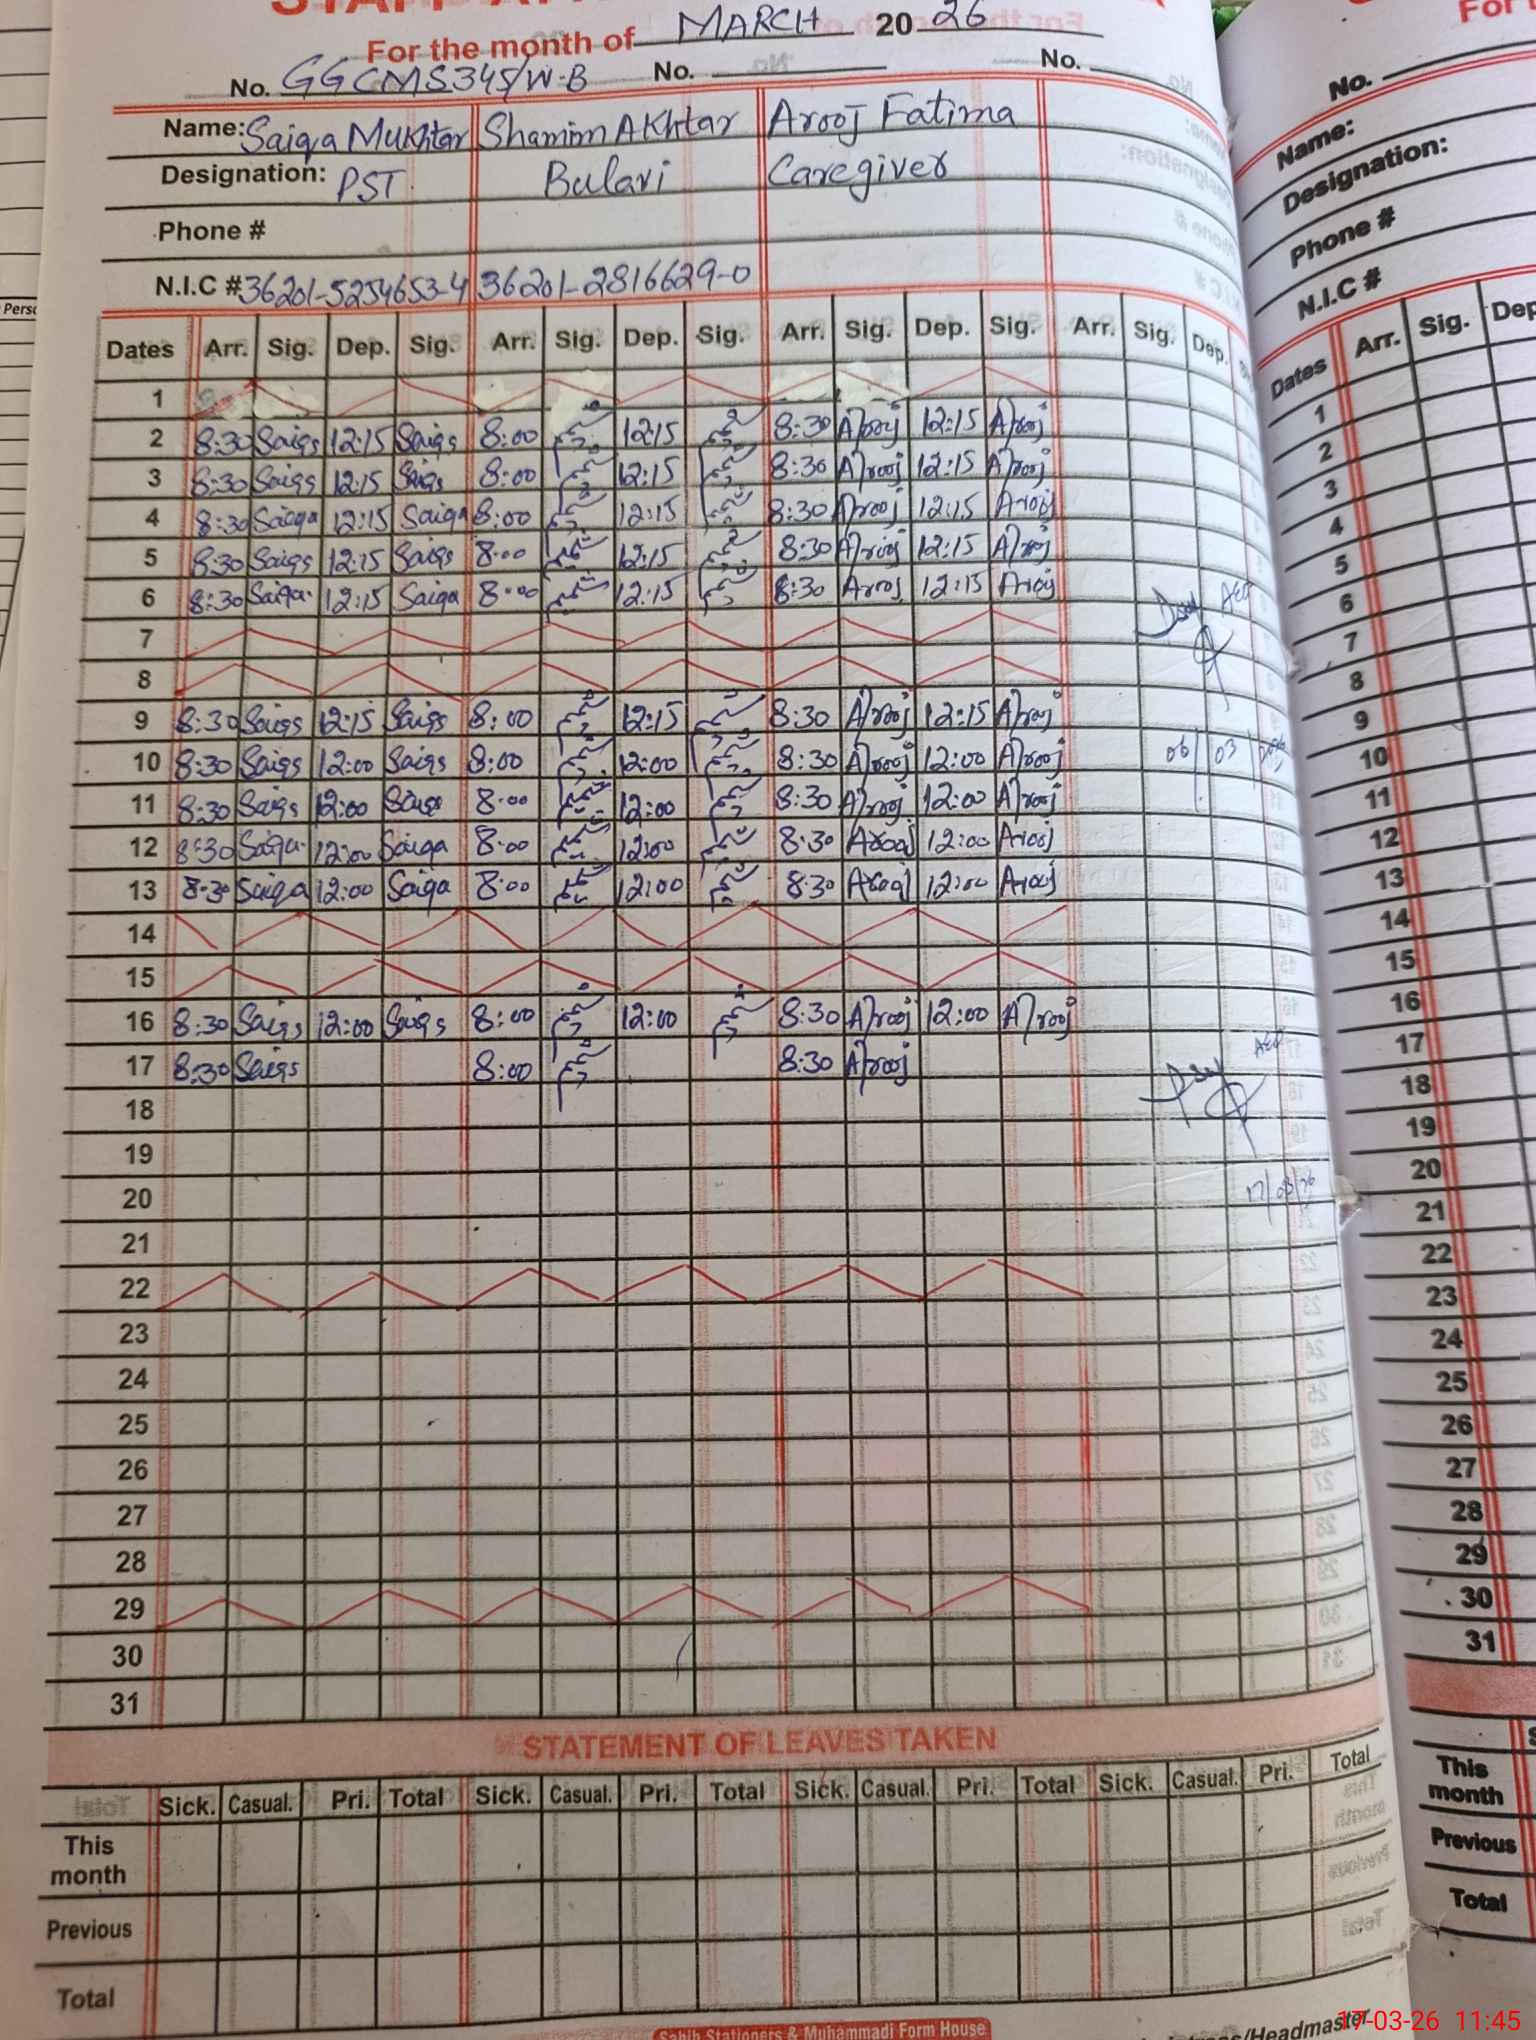 For the month of MARCH 20 26
No. GGCMS345/W-B No. No.
Name: Saiqa Mukhtar Shamim Akhtar Arooj Fatima
Designation: PST Bulavi Caregiver
Phone #
N.I.C # 36201-5254653-4 36201-2816629-0
Dates Arr. Sig. Dep. Sig. Arr. Sig. Dep. Sig. Arr. Sig. Dep. Sig. Arr. Sig. Dep.
1
2 8:30 Saiqa 12:15 Saiqa 8:00 12:15 8:30 Arooj 12:15 Arooj
3 8:30 Saiqa 12:15 Saiqa 8:00 12:15 8:30 Arooj 12:15 Arooj
4 8:30 Saiqa 12:15 Saiqa 8:00 12:15 8:30 Arooj 12:15 Arooj
5 8:30 Saiqa 12:15 Saiqa 8:00 12:15 8:30 Arooj 12:15 Arooj
6 8:30 Saiqa 12:15 Saiqa 8:00 12:15 8:30 Arooj 12:15 Arooj
7
8
9 8:30 Saiqa 12:15 Saiqa 8:00 12:15 8:30 Arooj 12:15 Arooj
10 8:30 Saiqa 12:00 Saiqa 8:00 12:00 8:30 Arooj 12:00 Arooj 06/03/
11 8:30 Saiqa 12:00 Saiqa 8:00 12:00 8:30 Arooj 12:00 Arooj
12 8:30 Saiqa 12:00 Saiqa 8:00 12:00 8:30 Arooj 12:00 Arooj
13 8:30 Saiqa 12:00 Saiqa 8:00 12:00 8:30 Arooj 12:00 Arooj
14
15
16 8:30 Saiqa 12:00 Saiqa 8:00 12:00 8:30 Arooj 12:00 Arooj
17 8:30 Saiqa 8:00 8:30 Arooj
18
19
20 17/03/26
21
22
23
24
25
26
27
28
29
30
31
STATEMENT OF LEAVES TAKEN
Sick. Casual. Pri. Total Sick. Casual. Pri. Total Sick. Casual. Pri. Total Sick. Casual. Pri. Total
This month
Previous
Total
Sahib Stationers & Muhammadi Form House
/Headmaster
No.
Name:
Designation:
Phone #
N.I.C #
Dates Arr. Sig. Dep
1
2
3
4
5
6
7
8
9
10
11
12
13
14
15
16
17
18
19
20
21
22
23
24
25
26
27
28
29
30
31
This month
Previous
Total
17-03-26 11:45